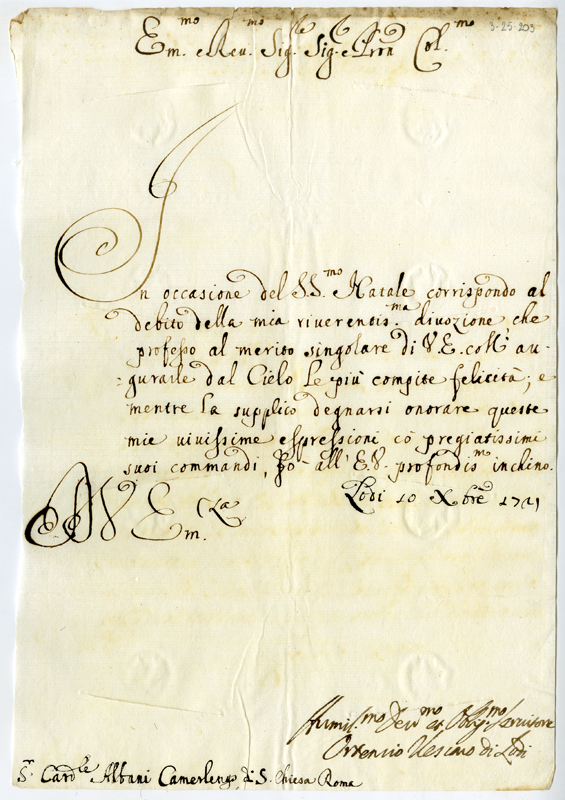 3-25-203
Em.mo e Rev.mo Sig.re Sig.r e Pron Col.mo
In occasione del SS.mo Natale corrispondo al
debito della mia riverentis.ma divozione, che
professo al merito singolare di V. E. coll' au-
gurarle dal Cielo le più compite felicità; e
mentre la supplico degnarsi onorare queste
mie vivissime espressioni cō pregiatissimi
suoi commandi, fo all' E. V. profondis.mo inchino.
Lodi 10 Xbre 1721
V. Em.za
Humil.mo Dev.mo et Oblig.mo Servitore
Ortensio Vescovo di Lodi
S.r Card.le Albani Camerlengo di S. Chiesa Roma